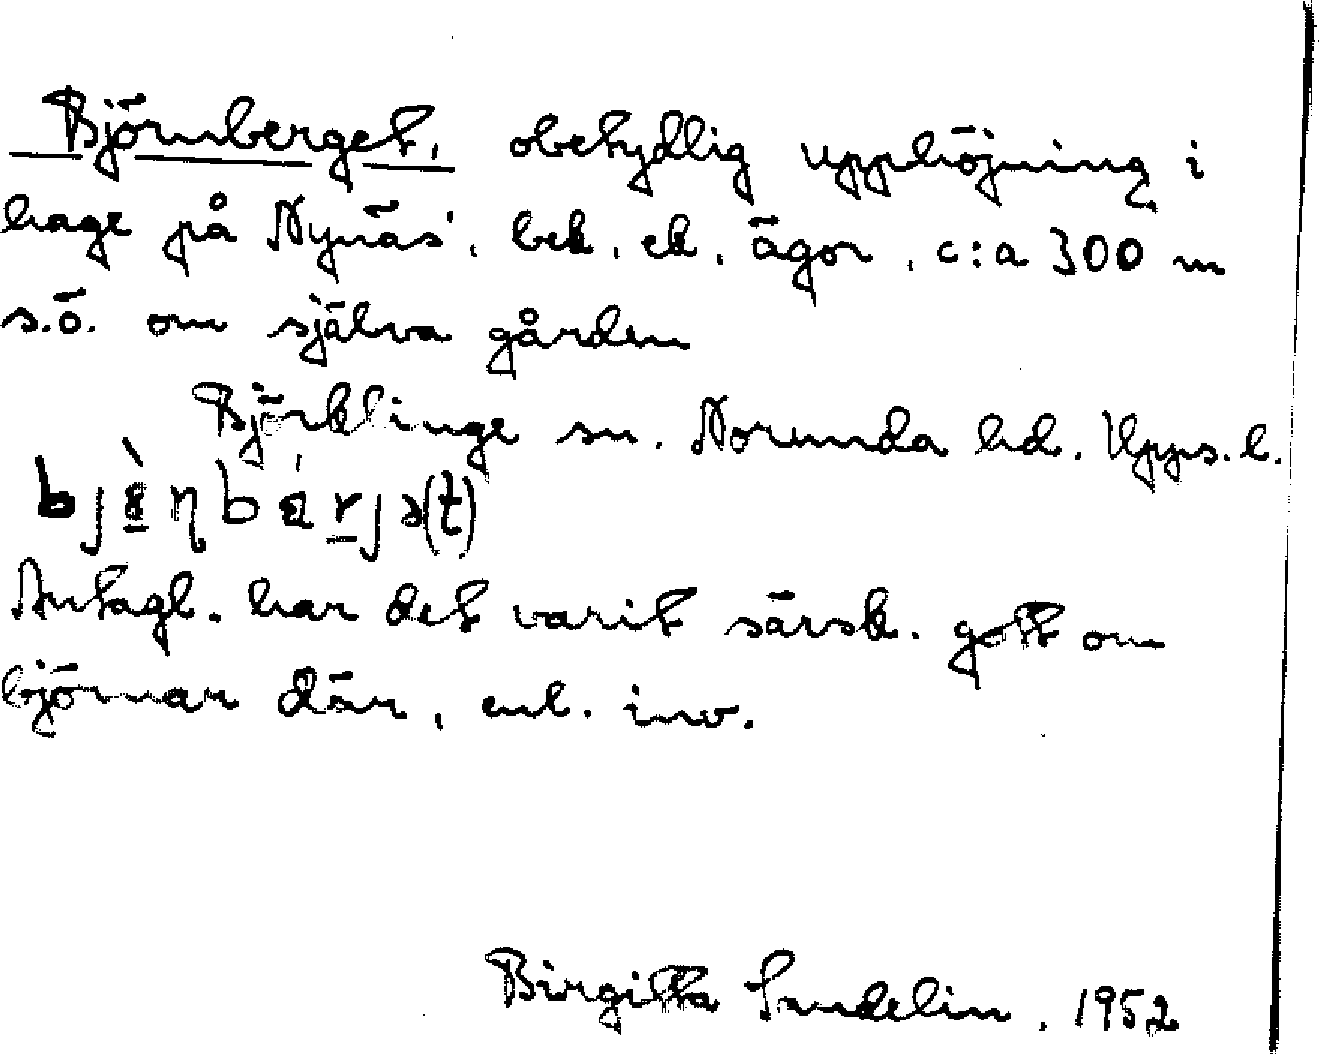 Björnberget, obetydlig upphöjning i
hage på Nynäs', bek. ek. ägor, c:a 300 m
s.ö. om själva gården
Björklinge sn. Norunda hd. Upps. l.
Antagl. har det varit särsk. gott om
björnar där, enl. inv.
Birgitta Sundelin, 1952